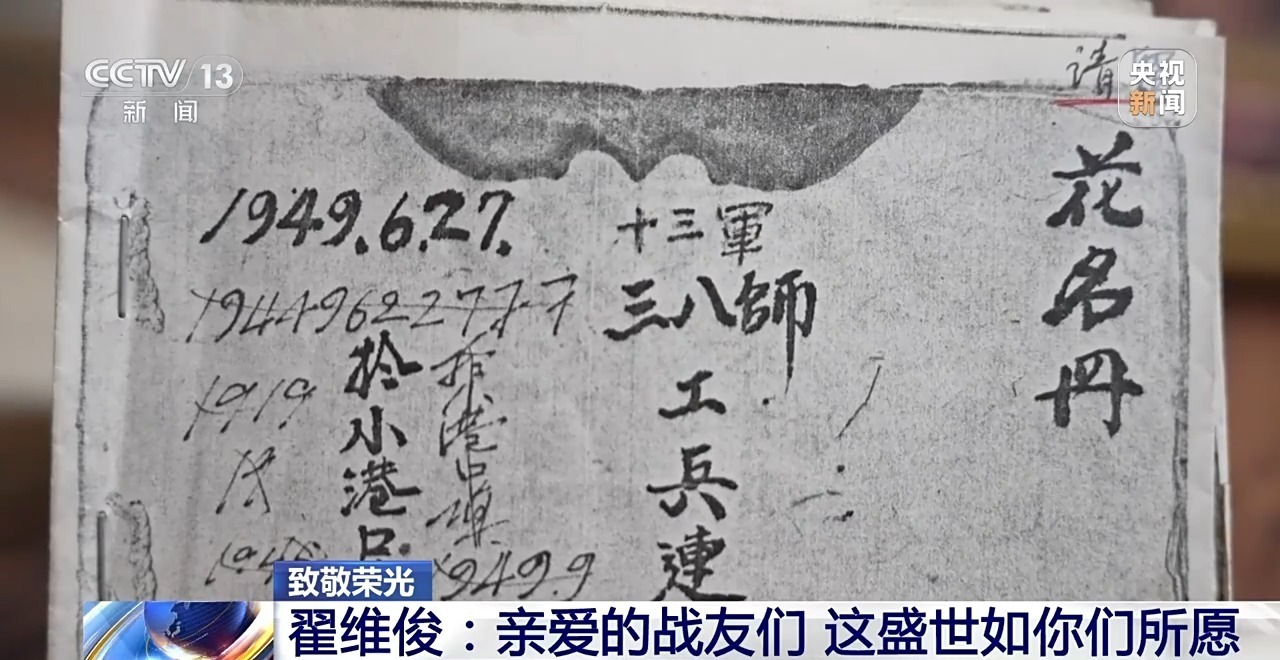 CCTV 13
新闻
央视
新闻
请
花名册
十三軍
三八師
工兵連
1949.6.27.
拾小港口
1949.9
致敬荣光
翟维俊：亲爱的战友们 这盛世如你们所愿